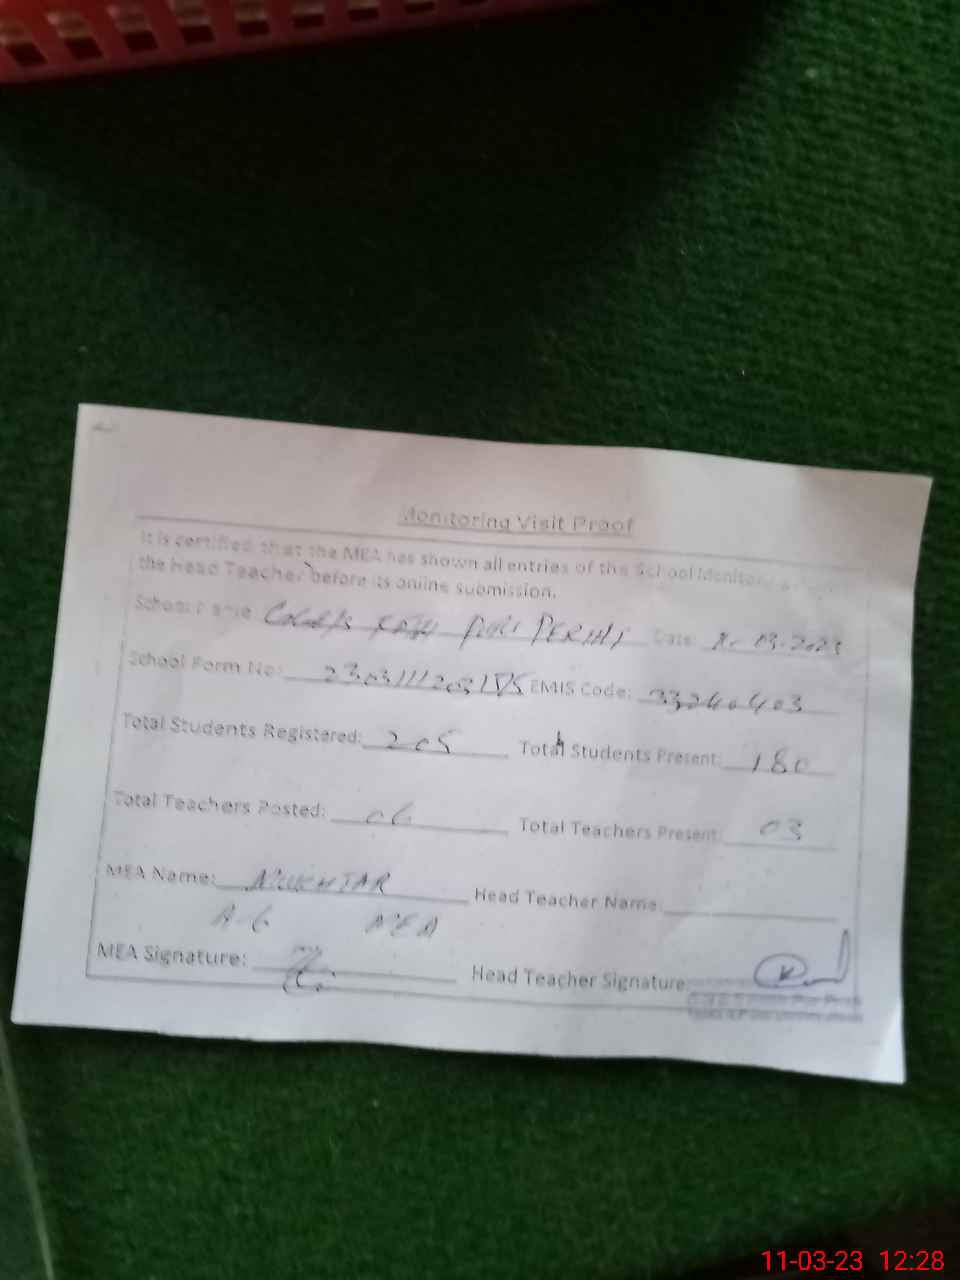 Monitoring Visit Proof
It is certified that the MEA has shown all entries of the School Monitoring
the Head Teacher before its online submission.
School Name Date: 03-2023
School Form No: EMIS Code: 33240403
Total Students Registered: 205 Total Students Present: 180
Total Teachers Posted: 06 Total Teachers Present: 03
MEA Name: MUKHTAR Head Teacher Name:
MEA
MEA Signature: Head Teacher Signature
11-03-23 12:28